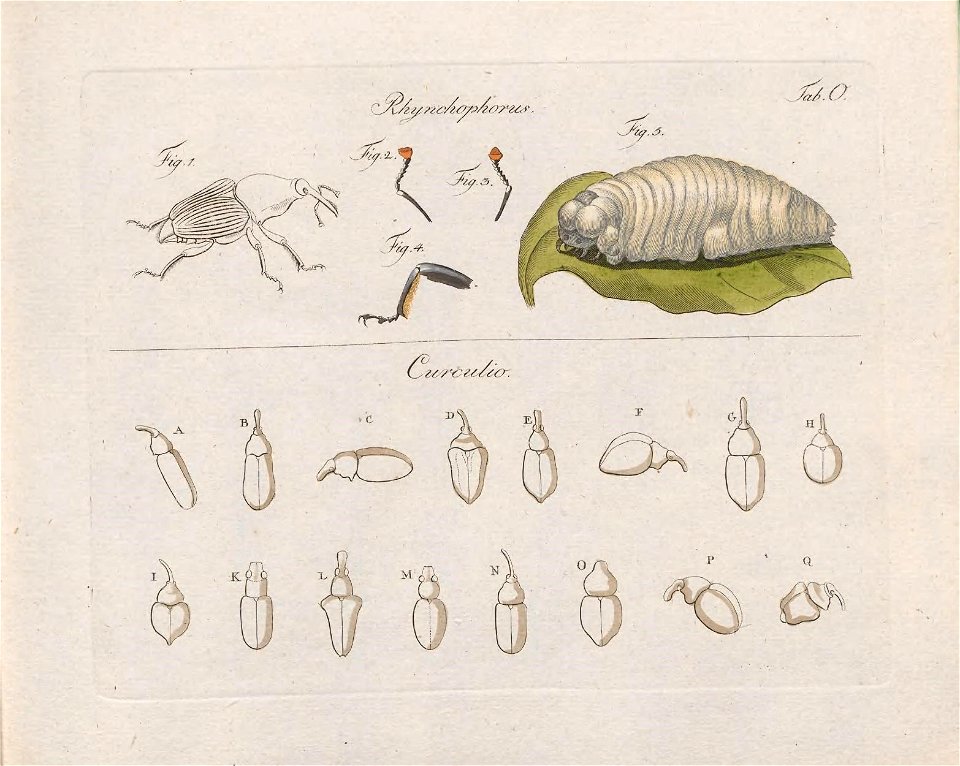 Tab. O.
Rhynchophorus.
Fig. 1.
Fig. 2.
Fig. 3.
Fig. 4.
Fig. 5.
Curculio.
A B C D E F G H
I K L M N O P Q